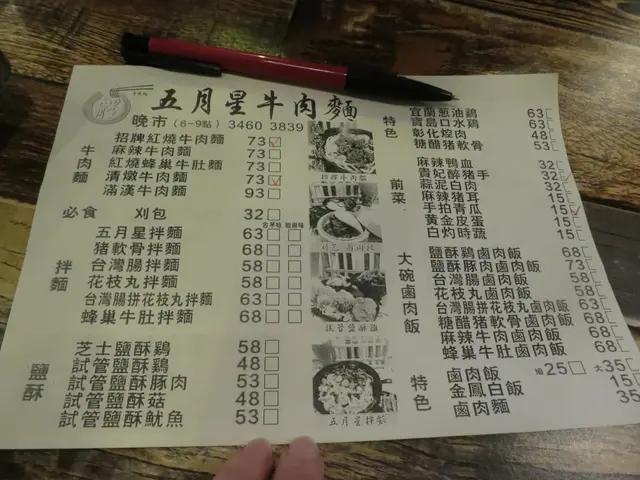 五月星牛肉麵
晚市 (6-9點) 3460 3839
牛肉麵
招牌紅燒牛肉麵 73
麻辣牛肉麵 73
紅燒蜂巢牛肚麵 73
清燉牛肉麵 73
滿漢牛肉麵 93
必食 刈包 32
拌麵
五月星拌麵 63
豬軟骨拌麵 68
台灣腸拌麵 58
花枝丸拌麵 58
台灣腸拼花枝丸拌麵 63
蜂巢牛肚拌麵 68
鹽酥
芝士鹽酥鷄 58
試管鹽酥鷄 48
試管鹽酥豚肉 53
試管鹽酥菇 48
試管鹽酥魷魚 53
五月星拌麵
特色
宜蘭葱油鷄 63
寶島口水鷄 63
彰化焢肉 48
糖醋豬軟骨 53
前菜
麻辣鴨血 32
貴妃醉豬手 32
蒜泥白肉 32
麻辣豬耳 32
手拍青瓜 15
黃金皮蛋 15
白灼時蔬 15
大碗鹵肉飯
鹽酥鷄鹵肉飯 68
鹽酥豚肉鹵肉飯 73
台灣腸鹵肉飯 58
花枝丸鹵肉飯 58
台灣腸拼花枝丸鹵肉飯 63
糖醋豬軟骨鹵肉飯 68
麻辣牛肉鹵肉飯 68
蜂巢牛肚鹵肉飯 68
特色
鹵肉飯 細25 大35
金鳳白飯 15
鹵肉麵 35